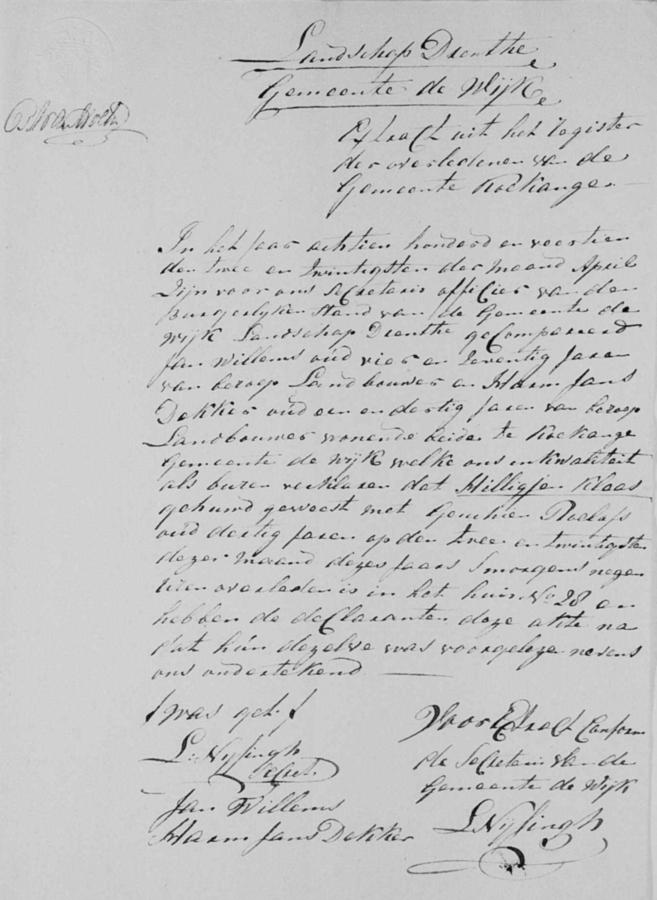 Landschap Drenthe
Gemeente de Wijk
Extract uit het register
der overledenen van de
Gemeente Kockange
In het Jaar achtien honderd en veertien
den twee en twintigsten der maand April
Zijn voor ons Secretaris officier van den
Burgerlyken Stand van de Gemeente de
Wijk Landschap Drenthe gecompareerd
Jan Willems oud vier en zeventig Jaren
van beroep Landbouwer en Harm Jans
Dekker oud een en dertig Jaren van beroep
Landbouwer wonende beide te Kockange
Gemeente de Wijk welke ons in kwaliteit
als buren verklaren dat Hilligjen Klaas
gehuwd geweest met Roelofs
oud dertig Jaren op den twee en twintigsten
dezer maand dezes Jaars smorgens negen
uren overleden is in het huis No 28 en
hebben de declaranten deze akte na
dat hun dezelve was voorgelezen nevens
ons ondertekend
(was get.)
L: Nysingh
Secret.
Jan Willems
Harm Jans Dekker
Voor Extract Conform
de Secretaris van de
Gemeente de Wijk
L Nysingh